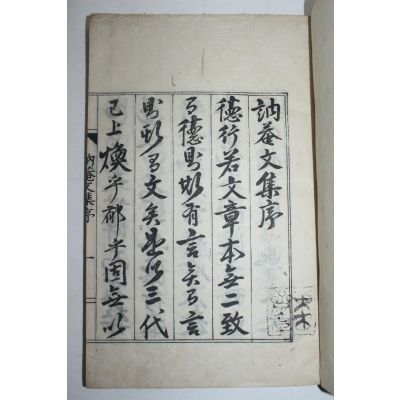 訥菴文集序
德行若文章本無二致
有德則斯有言矣有言
則斯有文矣是以三代
已上煥乎郁乎固無以
訥菴文集序 一